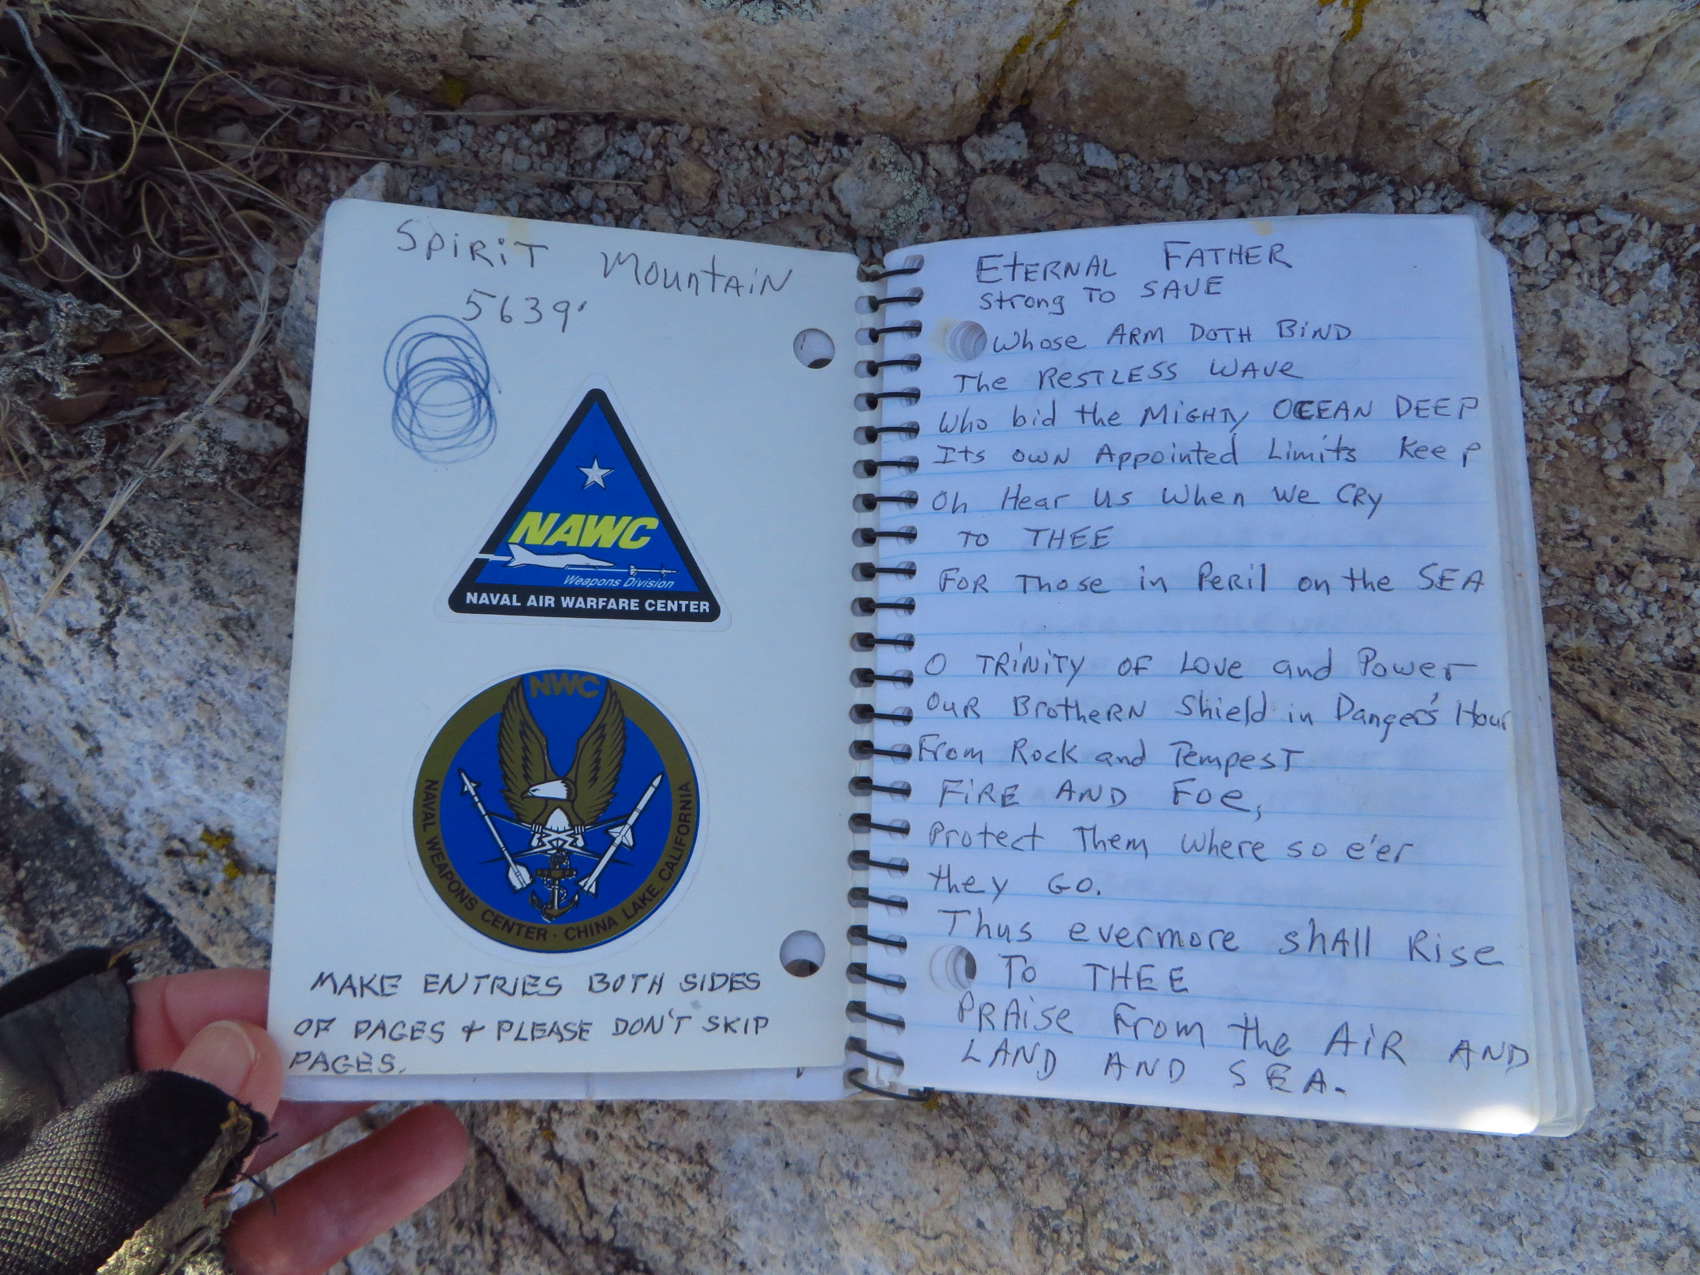 SPiRiT MountAiN
5639'
NAWC
Weapons Division
NAVAL AIR WARFARE CENTER
NWC
NAVAL WEAPONS CENTER · CHINA LAKE, CALIFORNIA
MAKE ENTRIES BOTH SIDES
OF PAGES + PLEASE DON'T SKIP
PAGES.
EtERNAL FATHER
Strong TO SAVE
Whose ARM DOTH BiND
The RESTLESS WAVE
Who bid the MIGHTY OCEAN DEEP
Its OWN Appointed Limits Keep
Oh Hear Us When We CRy
TO THEE
FOR Those in Peril on the SEA
O TRiNiTY OF Love and Power
OUR BrotheRN Shield in Danger's Hour
From Rock and TempesT
FiRE AND FOe,
Protect Them Where so e'er
they GO.
Thus evermore shAll Rise
To THEE
PRAise From the AiR AND
LAND AND SEA.